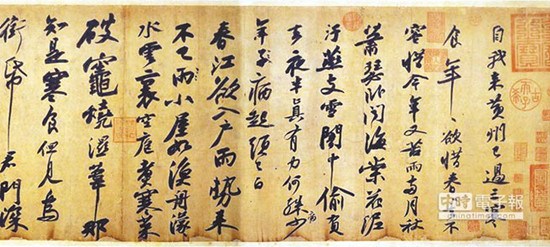 自我來黃州已過三寒
食年〻欲惜春〻去不
容惜今年又苦雨兩月秋
蕭瑟卧聞海棠花泥
汙燕支雪闇中偷負
去夜半真有力何殊病少
年子病起頭已白
春江欲入戶雨勢來
不已雨小屋如漁舟濛〻
水雲裏空庖煮寒菜
破竈燒濕葦那
知是寒食但見烏
銜帋君門深
中時電子報